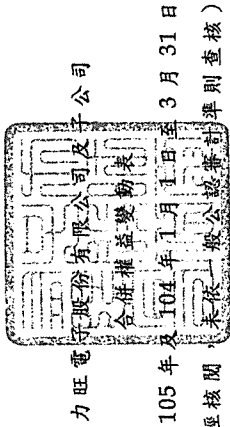 力旺電子股份有限公司及子公司
合併權益變動表
105 年及 104 年 1 月 1 日至 3 月 31 日
經核閱 未依一般公認審計準則查核）